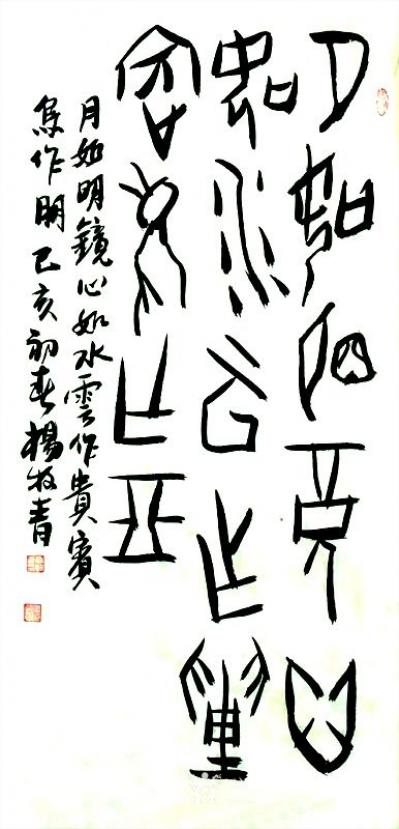 月如明鏡心
如水雲作貴
賓鳥作朋
月如明鏡心如水雲作貴賓
鳥作朋己亥初春楊牧青